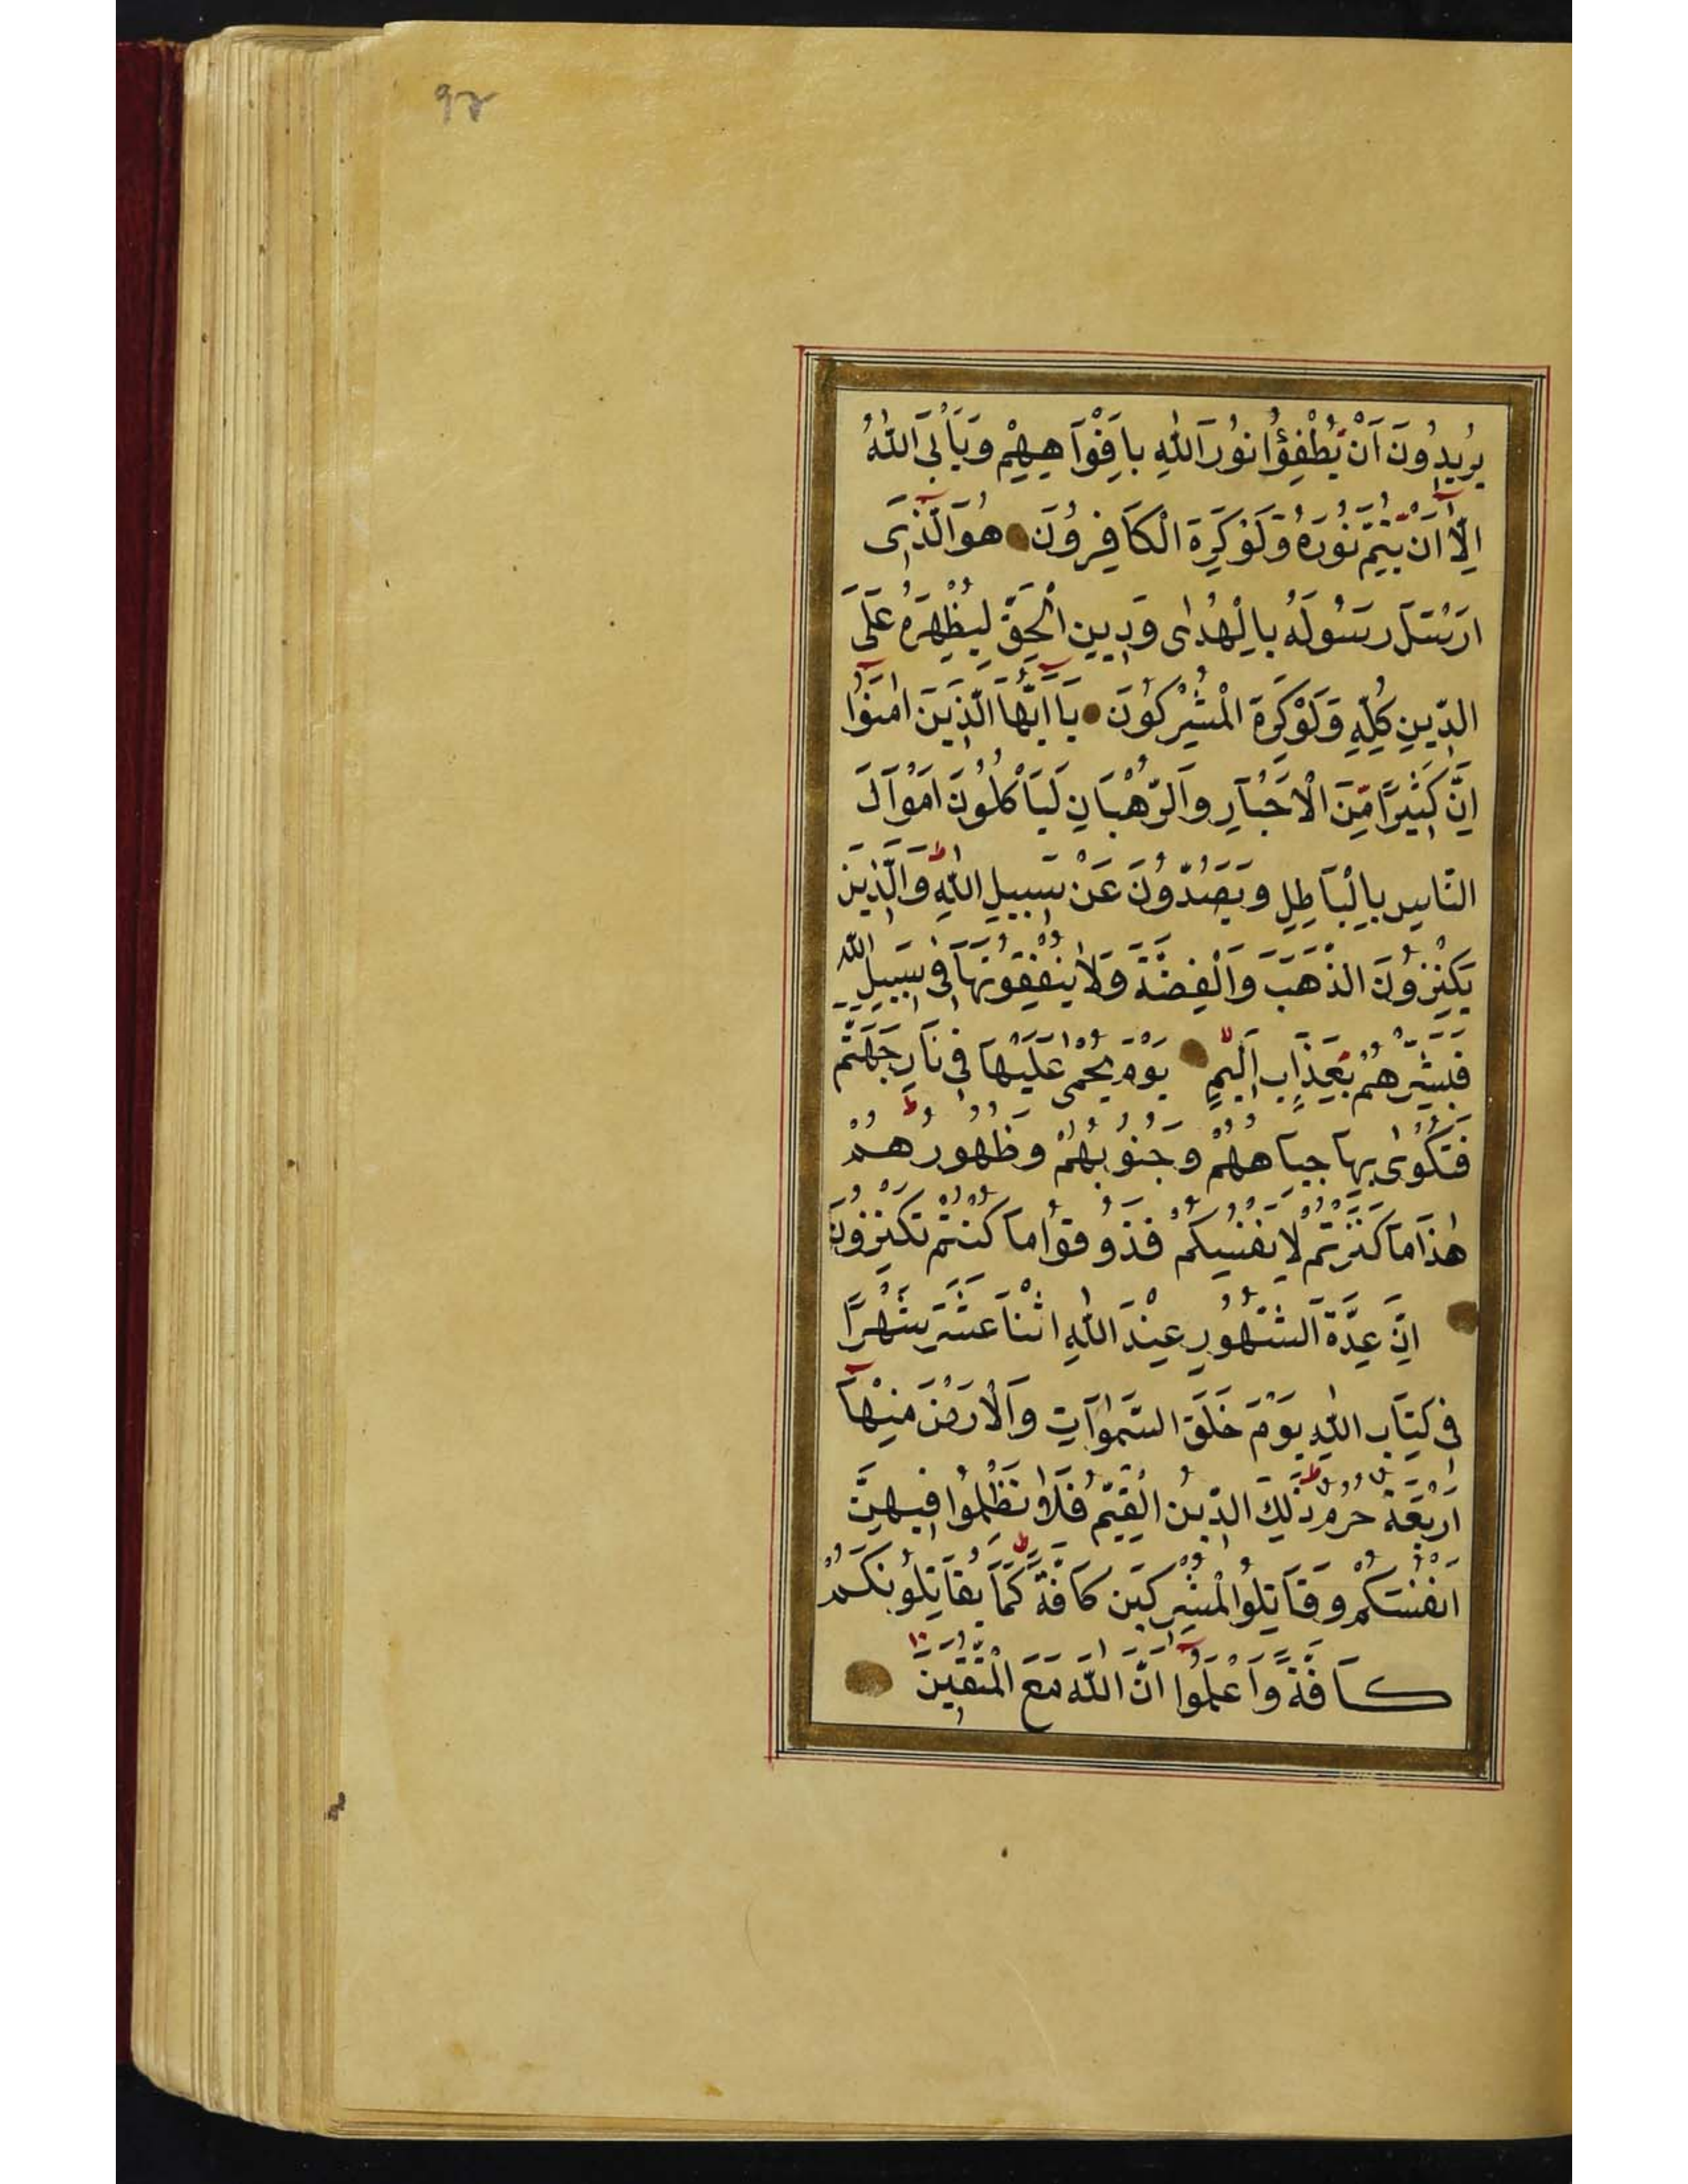 ۹۲
يُرِيدُونَ اَنْ يُطْفِؤُا نُورَ اللّٰهِ بِاَفْوَاهِهِمْ وَيَأْبَى اللّٰهُ
اِلَّآ اَنْ يُتِمَّ نُورَهُ وَلَوْ كَرِهَ الْكَافِرُونَ هُوَ الَّذِى
اَرْسَلَ رَسُولَهُ بِالْهُدٰى وَدِينِ الْحَقِّ لِيُظْهِرَهُ عَلَى
الدِّينِ كُلِّهِ وَلَوْ كَرِهَ الْمُشْرِكُونَ يَآ اَيُّهَا الَّذِينَ اٰمَنُوٓا
اِنَّ كَثِيرًا مِنَ الْاَحْبَارِ وَالرُّهْبَانِ لَيَأْكُلُونَ اَمْوَالَ
النَّاسِ بِالْبَاطِلِ وَيَصُدُّونَ عَنْ سَبِيلِ اللّٰهِ ط وَالَّذِينَ
يَكْنِزُونَ الذَّهَبَ وَالْفِضَّةَ وَلَا يُنْفِقُونَهَا فِى سَبِيلِ اللّٰهِ
فَبَشِّرْهُمْ بِعَذَابٍ اَلِيمٍ لا يَوْمَ يُحْمٰى عَلَيْهَا فِى نَارِ جَهَنَّمَ
فَتُكْوٰى بِهَا جِبَاهُهُمْ وَجُنُوبُهُمْ وَظُهُورُهُمْ ط
هٰذَا مَا كَنَزْتُمْ لِاَنْفُسِكُمْ فَذُوقُوا مَا كُنْتُمْ تَكْنِزُونَ
اِنَّ عِدَّةَ الشُّهُورِ عِنْدَ اللّٰهِ اثْنَا عَشَرَ شَهْرًا
فِى كِتَابِ اللّٰهِ يَوْمَ خَلَقَ السَّمٰوَاتِ وَالْاَرْضَ مِنْهَآ
اَرْبَعَةٌ حُرُمٌ ط ذٰلِكَ الدِّينُ الْقَيِّمُ فَلَا تَظْلِمُوا فِيهِنَّ
اَنْفُسَكُمْ وَقَاتِلُوا الْمُشْرِكِينَ كَافَّةً كَمَا يُقَاتِلُونَكُمْ
كَافَّةً ط وَاعْلَمُوٓا اَنَّ اللّٰهَ مَعَ الْمُتَّقِينَ ۱۰